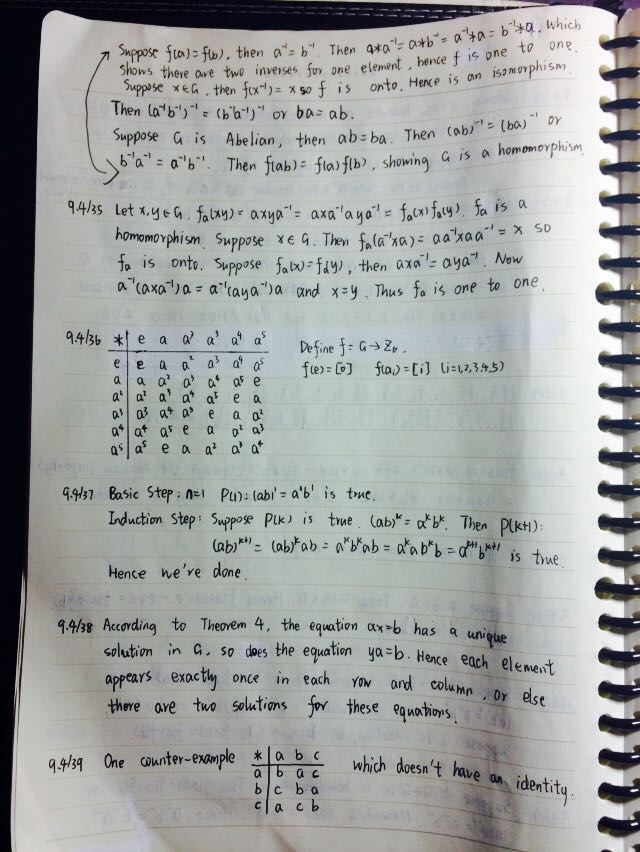 Suppose f(a)=f(b), then a⁻¹=b⁻¹. Then a*a⁻¹=a*b⁻¹=a⁻¹*a=b⁻¹*a, which
shows there are two inverses for one element, hence f is one to one.
Suppose x∈G, then f(x⁻¹)=x so f is onto. Hence is an isomorphism.
Then (a⁻¹b⁻¹)⁻¹=(b⁻¹a⁻¹)⁻¹ or ba=ab.
Suppose G is Abelian, then ab=ba. Then (ab)⁻¹=(ba)⁻¹ or
b⁻¹a⁻¹=a⁻¹b⁻¹. Then f(ab)=f(a)f(b), showing G is a homomorphism.
9.4/35 Let x,y∈G. fₐ(xy)=axya⁻¹=axa⁻¹aya⁻¹=fₐ(x)fₐ(y). fₐ is a
homomorphism. Suppose x∈G. Then fₐ(a⁻¹xa)=aa⁻¹xaa⁻¹=x so
fₐ is onto. Suppose fₐ(x)=fₐ(y), then axa⁻¹=aya⁻¹. Now
a⁻¹(axa⁻¹)a=a⁻¹(aya⁻¹)a and x=y. Thus fₐ is one to one.
9.4/36 * e a a² a³ a⁴ a⁵ Define f: G→Z₆.
e e a a² a³ a⁴ a⁵ f(e)=[0] f(aᵢ)=[i] (i=1,2,3,4,5)
a a a² a³ a⁴ a⁵ e
a² a² a³ a⁴ a⁵ e a
a³ a³ a⁴ a⁵ e a a²
a⁴ a⁴ a⁵ e a a² a³
a⁵ a⁵ e a a² a³ a⁴
9.4/37 Basic Step: n=1 P(1): (ab)¹=a¹b¹ is true.
Induction Step: Suppose P(k) is true. (ab)ᵏ=aᵏbᵏ. Then P(k+1):
(ab)ᵏ⁺¹=(ab)ᵏab=aᵏbᵏab=aᵏabᵏb=aᵏ⁺¹bᵏ⁺¹ is true.
Hence we're done.
9.4/38 According to Theorem 4, the equation ax=b has a unique
solution in G, so does the equation ya=b. Hence each element
appears exactly once in each row and column, or else
there are two solutions for these equations.
9.4/39 One counter-example * a b c which doesn't have an identity.
a b a c
b c b a
c a c b